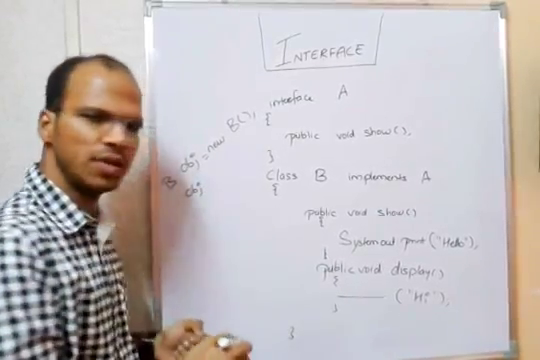 INTERFACE
interface A
{
public void show();
}
Class B implements A
{
public void show()
{
System.out.print("Hello");
}
public void display()
{
("Hi");
}
}
B obj = new B();
obj